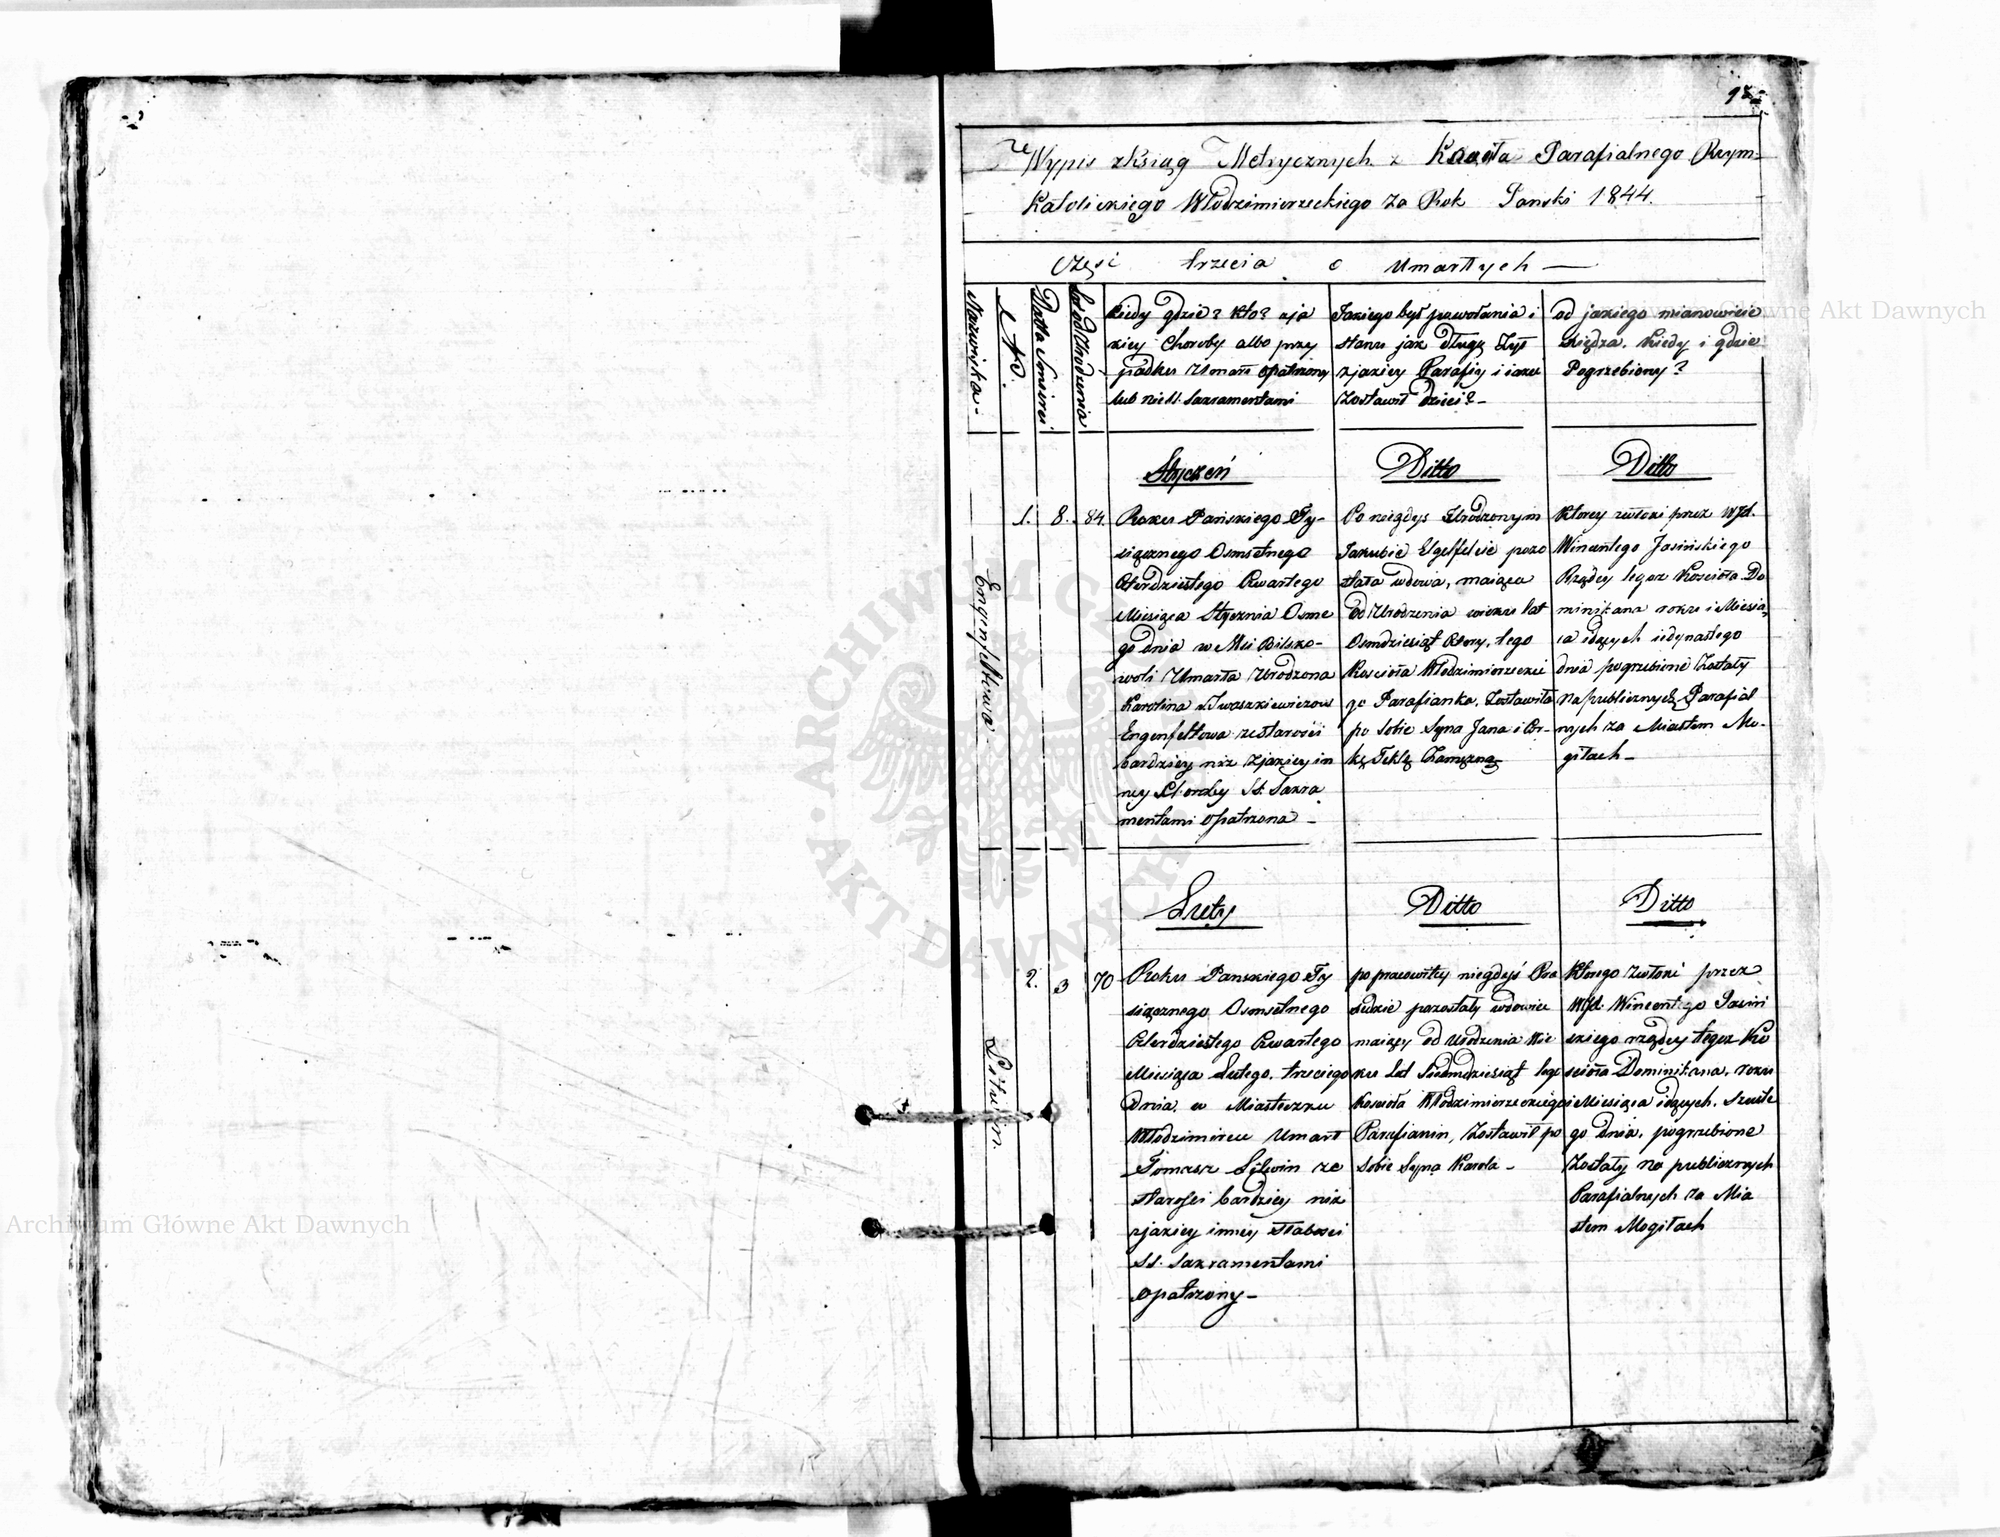 Wypis z Ksiąg Metrycznych z Kościoła Parafialnego Rzym-
Katolickiego Włodzimierzeckiego za Rok Panski 1844.
Część trzecia o Umarłych —
Nazwiska.
N.
Datta Smierci
Kiedy gdzie? kto? z ja
kiey Choroby albo przy
padku Umarł opatrzony
lub nie SS. Sakramentami
Jakiego był powołania i
stanu jak długo żył
z jakiey Parafiy i jakie
Zostawił dzieci? –
od jakiego mianowicie
Księdza. Kiedy i gdzie
Pogrzebiony?
Styczeń
Ditto
Ditto
Engenfeltowa
1. 8. 84.
Roku Pańskiego Ty-
siącznego Osmsetnego
Czterdziestego Czwartego
Miesiąca Stycznia Osme
go dnia w Wsi Bilsko-
woli Umarła Urodzona
Karolina z Iwaszkiewiczow
Engenfeltowa ze starości
bardziey niż z jakiey in
ney Choroby SS. Sakra
mentami Opatrzona –
Po niegdys Urodzonym
Jakubie pozo
stała wdowa, maiąca
od Urodzenia wieku lat
Osmdziesiąt cztery, tego
Kościoła Włodzimierzeckie
go Parafianka. Zostawiła
po sobie Syna Jana i Cor-
kę Teklę Zamężną
Ktorey zwłoki przez WJX.
Wincentego Jasińskiego
Rządcy tegoz Kościoła Do
minikana roku i Miesią
ca idących iedynastego
dnia pogrzebione Zostały
Na publicznych Parafial
nych za Miastem Mo-
giłach –
Luty
Ditto
Ditto
2. 3 70
Roku Panskiego Ty
siącznego Osmsetnego
Czterdziestego Czwartego
Miesiąca Lutego, trzeciego
Dnia w Miasteczku
Włodzimircu Umarł
Tomasz Litwin ze
starosci bardziey niż
z jakiey inney słabosci
SS. Sakramentami
Opatrzony –
po pracowitey niegdyś
pozostały wdowiec
maiący od Urodzenia wie
ku lat Siedmdziesiąt tego
Kosciola Włodzimierzeckiego
Parafianin, Zostawił po
sobie Syna Karola –
Ktorego zwłoki przez
WJX. Wincentego Jasiń
skiego rządcy tegoz Ko
scioła Dominikana, roku
i Miesiąca idących. Szoste
go dnia, pogrzebione
Zostały na publicznych
Parafialnych za Mia
stem Mogiłach
Litwin.
Archiwum Główne Akt Dawnych
Archiwum Główne Akt Dawnych
ARCHIWUM GŁÓWNE AKT DAWNYCH